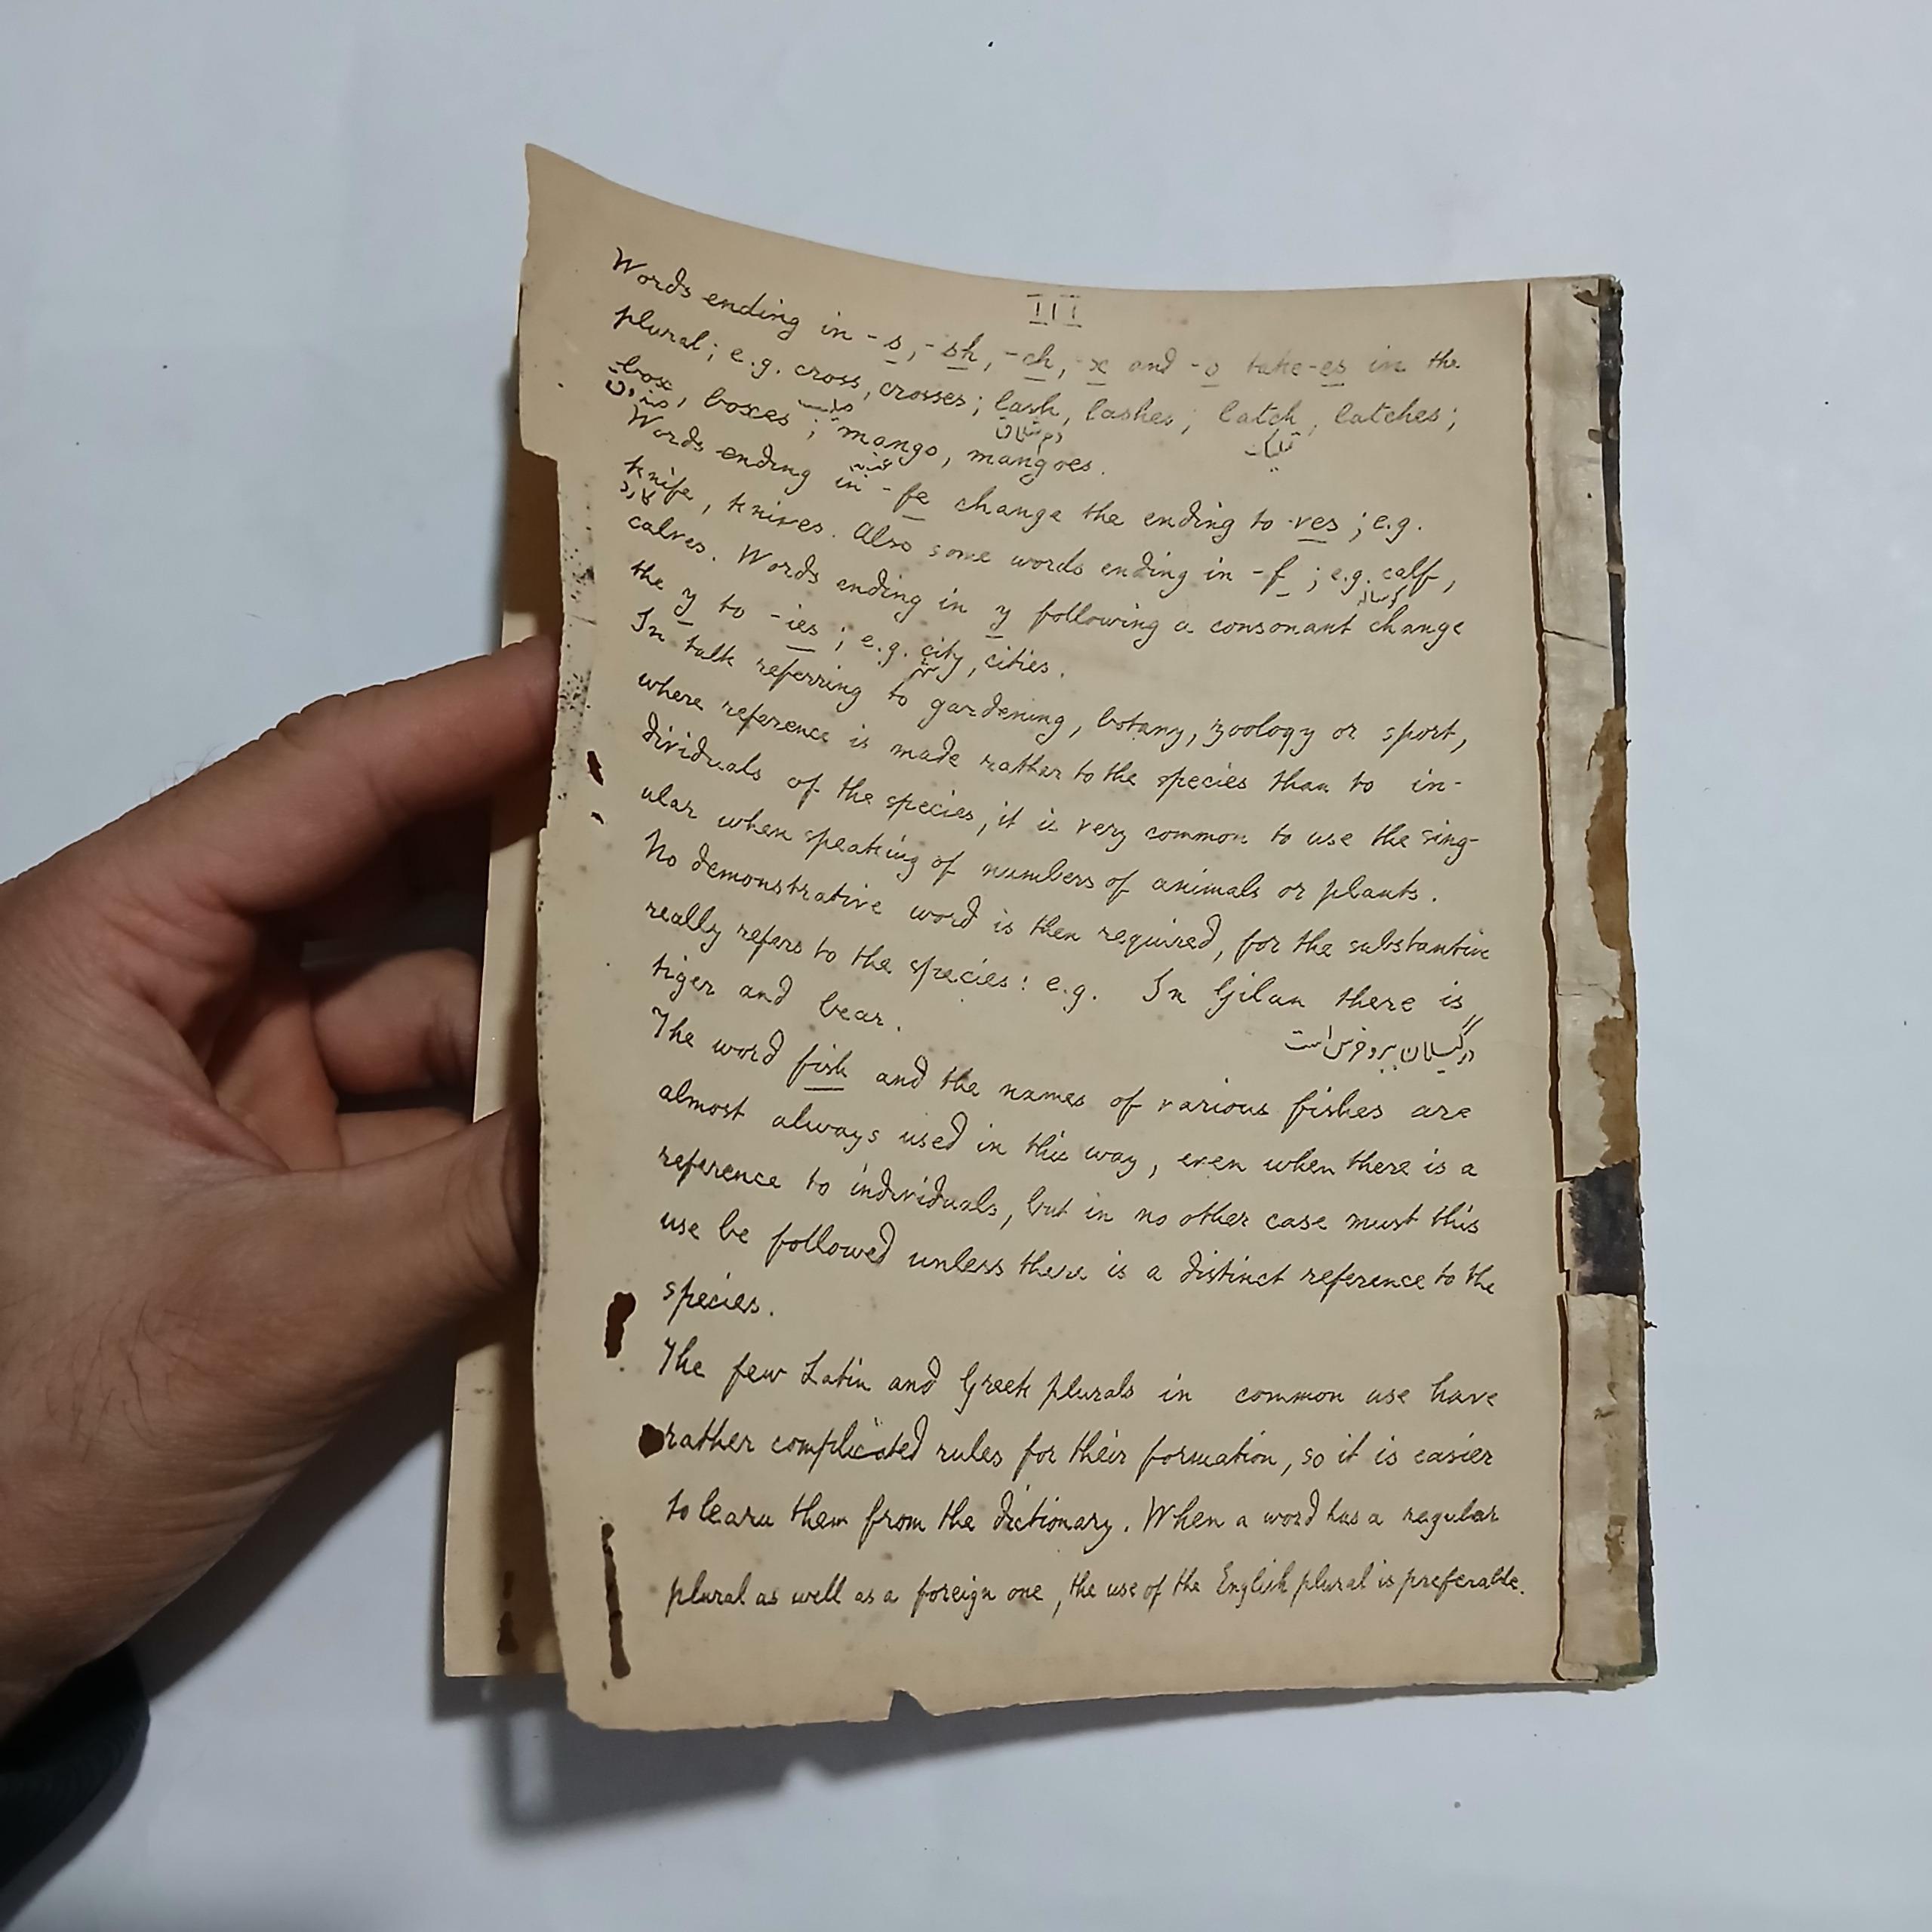 III
Words ending in -s, -sh, -ch, -x and -o take -es in the
plural; e.g. cross, crosses; lash, lashes; latch, latches;
box, boxes; mango, mangoes.
Words ending in -fe change the ending to -ves; e.g.
knife, knives. Also some words ending in -f; e.g. calf,
کارد
گوساله
calves. Words ending in y following a consonant change
the y to -ies; e.g. city, cities.
شهر
In talk referring to gardening, botany, zoology or sport,
where reference is made rather to the species than to in-
dividuals of the species, it is very common to use the sing-
ular when speaking of numbers of animals or plants.
No demonstrative word is then required, for the substantive
really refers to the species: e.g. In Gilan there is
tiger and bear.
در گیلان ببر و خرس است
The word fish and the names of various fishes are
almost always used in this way, even when there is a
reference to individuals, but in no other case must this
use be followed unless there is a distinct reference to the
species.
The few Latin and Greek plurals in common use have
rather complicated rules for their formation, so it is easier
to learn them from the dictionary. When a word has a regular
plural as well as a foreign one, the use of the English plural is preferable.